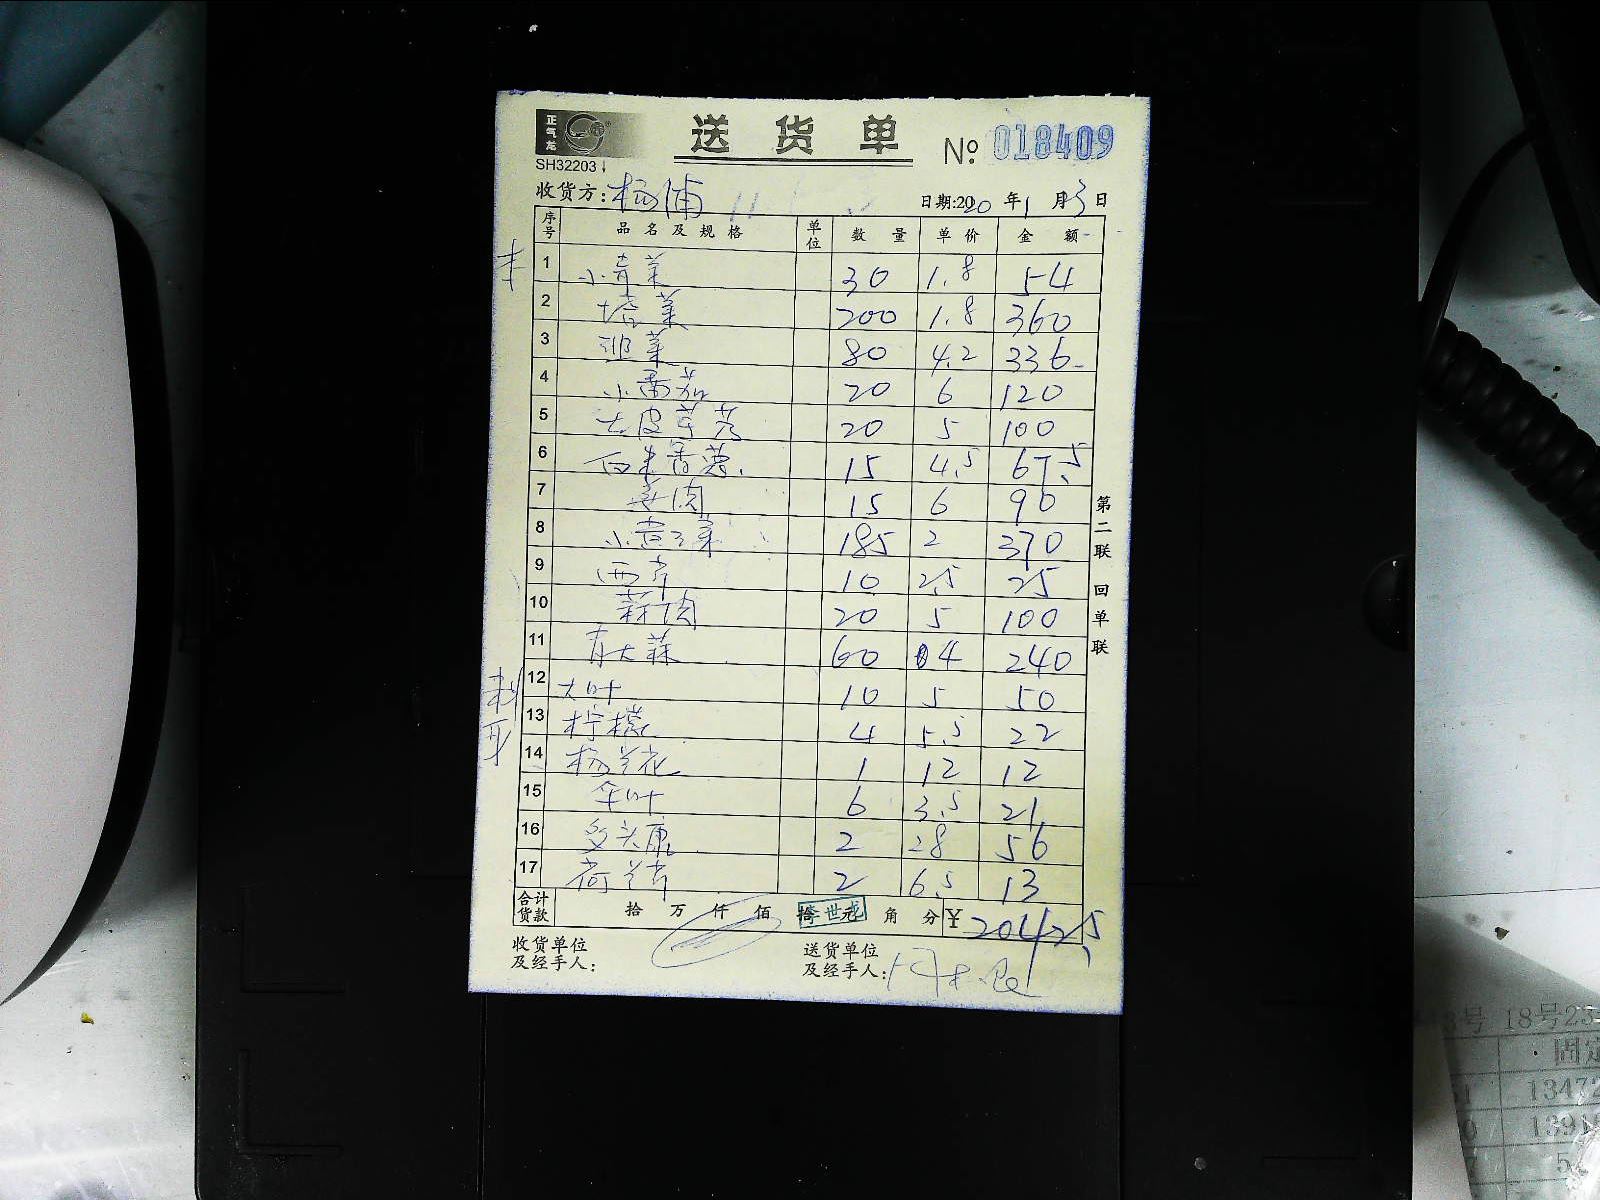 正气龙
送货单
№ 018409
SH32203
收货方: 杨浦 日期:2020年1月3日
序号 品名及规格 单位 数量 单价 金额
1 小青菜 30 1.8 54
2 塔菜 200 1.8 360
3 80 4.2 336
4 小番茄 20 6 120
5 大皮芽 20 5 100
6 白米 15 4.5 67.5
7 肉 15 6 90
8 小 菜 185 2 370
9 西芹 10 2.5 25
10 蒜肉 20 5 100
11 青大蒜 60 4 240
12 大叶 10 5 50
13 柠檬 4 5.5 22
14 杨兰花 1 12 12
15 伞叶 6 3.5 21
16 多头康 2 28 56
17 荷兰芹 2 6.5 13
合计货款 拾 万 仟 佰 拾 元 角 分 ¥ 2042.5
李世龙
收货单位及经手人:
送货单位及经手人:
第二联 回单联
3号 18号23
固定
13472